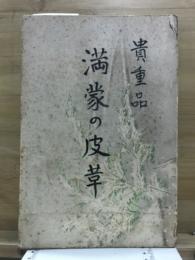 貴重品
満蒙の皮革